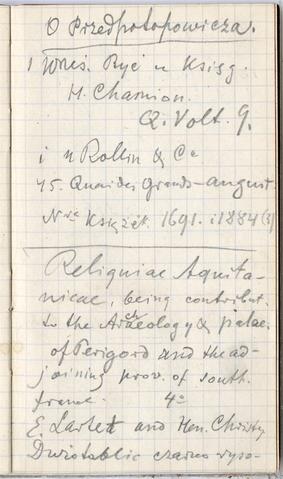 O Przedpotopowicza.
1 Wrześ. Być u Księg.
H. Champion.
Q. Volt. 9.
i u Rollin & Cᵉ
45. Quai des Grands-August.
Nʳᵃ Książek. 1691. i 1884 (3)
Reliquiae Aquita-
nicae, being contribut.
to the Archeology & palae.
of Perigord and the ad-
joining prov. of south.
france. 4°
E. Lartet and Hen. Christy